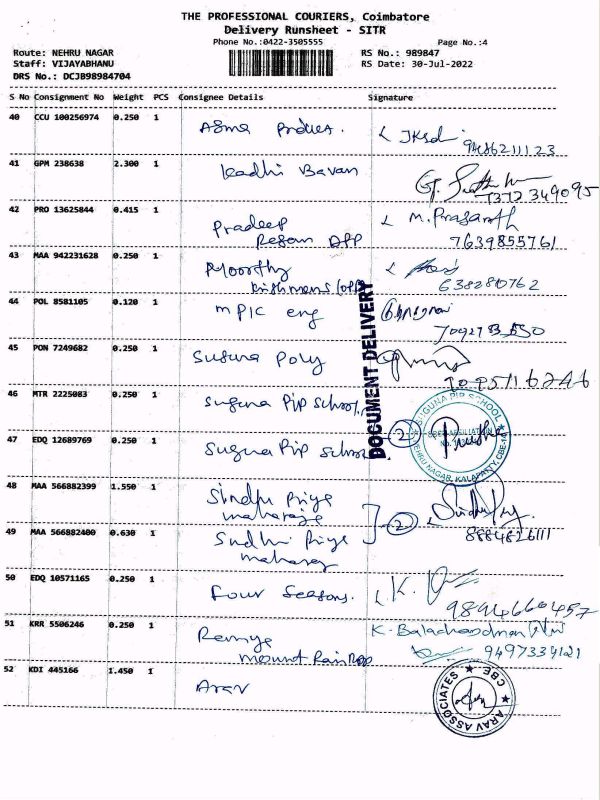 THE PROFESSIONAL COURIERS, Coimbatore
Delivery Runsheet - SITR
Phone No.:0422-3505555 Page No.:4
Route: NEHRU NAGAR RS No.: 989847
Staff: VIJAYABHANU RS Date: 30-Jul-2022
DRS No.: DCJB98984704
S No Consignment No Weight PCS Consignee Details Signature
40 CCU 100256974 0.250 1
9486211123
41 GPM 238638 2.300 1 Kadhi Bavan
7372349095
42 PRO 13625844 0.415 1 Pradeep M. Prasanth
7639855761
43 MAA 942231628 0.250 1 Moorthy
638280762
44 POL 8581105 0.120 1 MPIC eng
45 PON 7249682 0.250 1 Suguna Poly
46 MTR 2225083 0.250 1 Suguna PIP School
47 EDQ 12689769 0.250 1 Suguna PIP School 2
DOCUMENT DELIVERY
SUGUNA PIP SCHOOL
NEHRU NAGAR, KALAPATTY, CBE-
48 MAA 566882399 1.550 1 Sindhu Priya
maharaja 2
8884826111
49 MAA 566882400 0.630 1 Sindhu Priya
50 EDQ 10571165 0.250 1 Four Seasons. K.
9894660457
51 KRR 5506246 0.250 1 Ramya K. Balachandran
mount 9497339121
52 KDI 445166 1.450 1 Arav
ARAV ASSOCIATES CBE